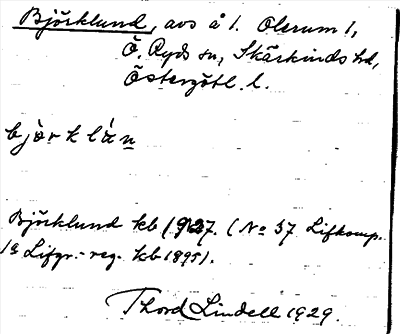 Björklund, avs å 1. Olsrum 1,
Ö. Ryds sn, Skärkinds hd,
Östergötl. l.
björklàn
Björklund kb 1927. (No 37 Lifkomp.
1a Lifgr.-reg. kb 1895).
Thord Lindell 1929.